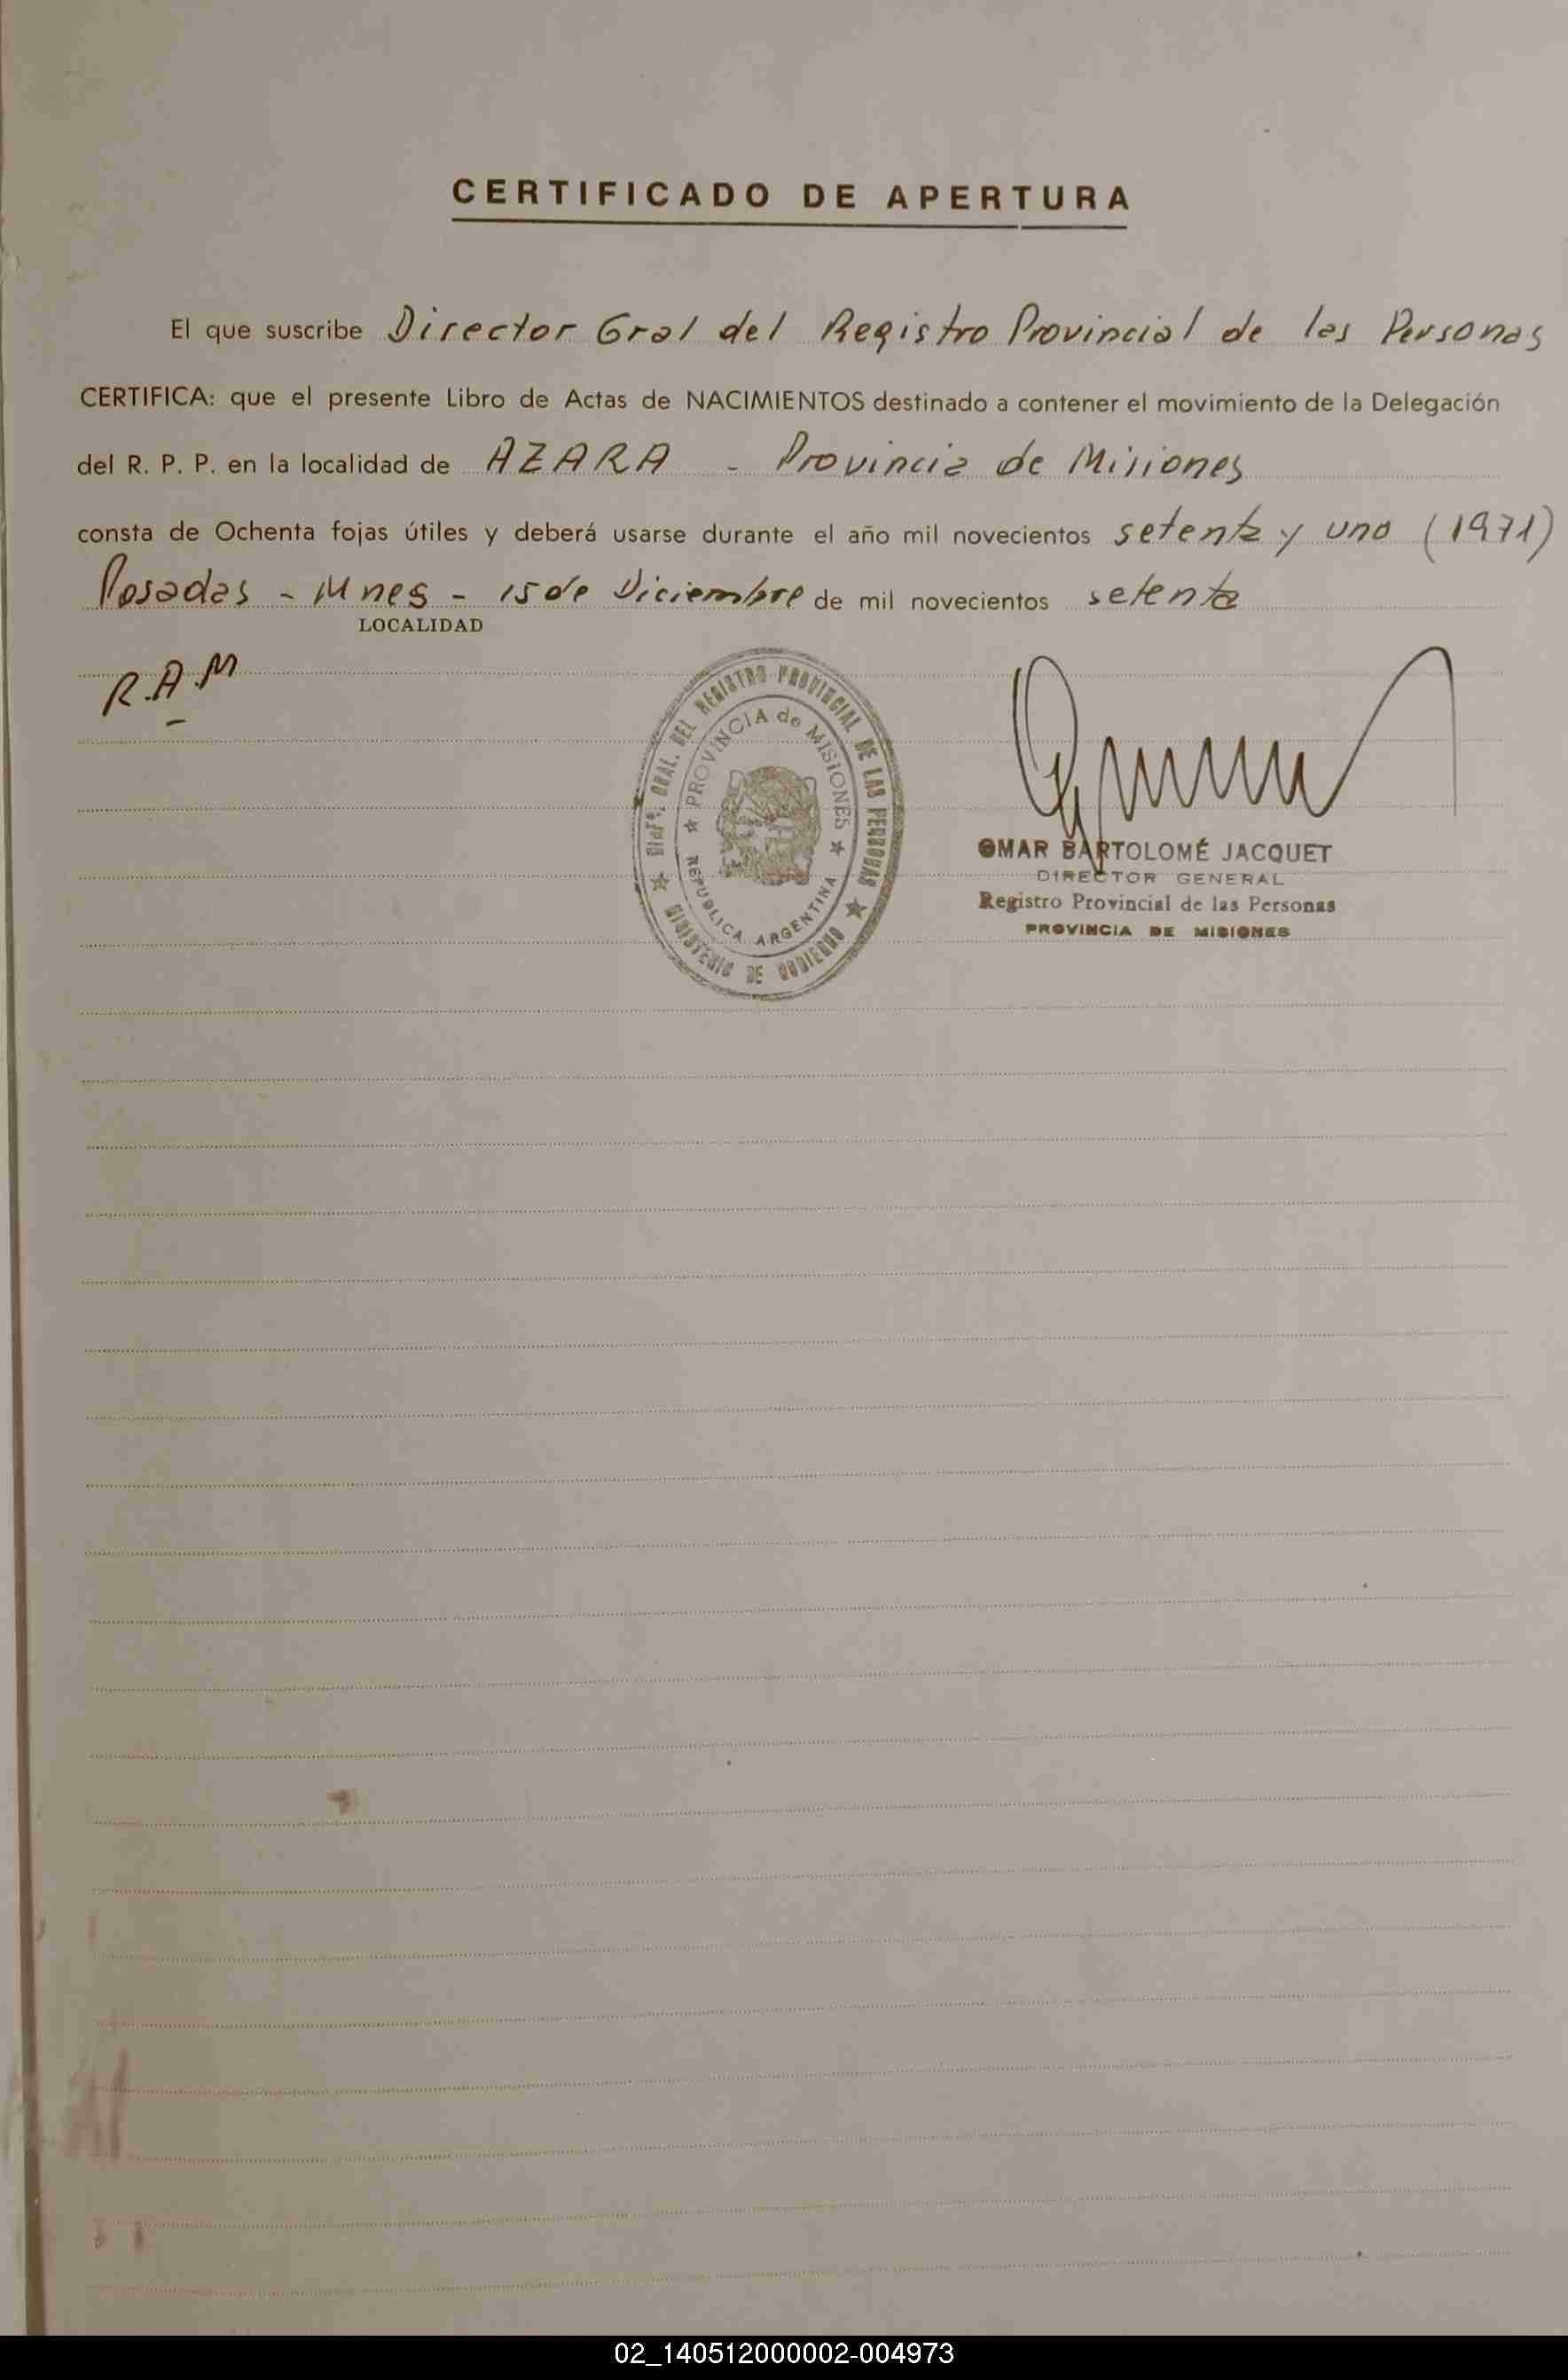 CERTIFICADO DE APERTURA
El que suscribe Director Gral del Registro Provincial de las Personas
CERTIFICA: que el presente Libro de Actas de NACIMIENTOS destinado a contener el movimiento de la Delegación
del R. P. P. en la localidad de AZARA - Provincia de Misiones
consta de Ochenta fojas útiles y deberá usarse durante el año mil novecientos setenta y uno (1971)
Posadas - Mnes - 15 de Diciembre de mil novecientos setenta
LOCALIDAD
R.A.M
DIREC. GRAL. DEL REGISTRO PROVINCIAL DE LAS PERSONAS
MINISTERIO DE GOBIERNO
PROVINCIA de MISIONES
REPUBLICA ARGENTINA
OMAR BARTOLOMÉ JACQUET
DIRECTOR GENERAL
Registro Provincial de las Personas
PROVINCIA DE MISIONES
02_140512000002-004973